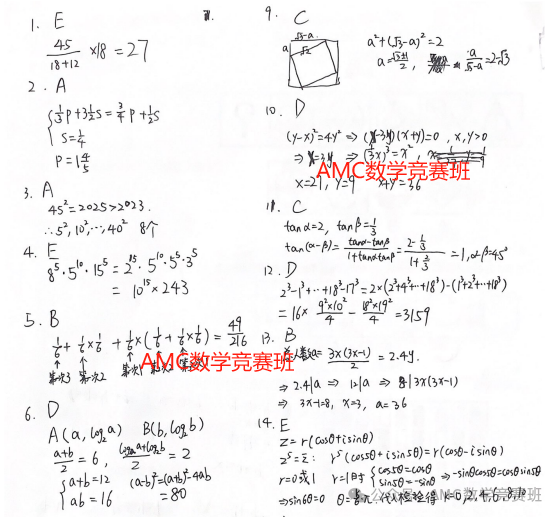 1. E
45/(18+12) ×18 = 27
2. A
S=1/4
3. A
45²=2025>2023.
∴5², 10², ⋯, 40² 8个
4. E
8⁵·5¹⁰·15⁵=2¹⁵·5¹⁰·5⁵·3⁵
= 10¹⁵×243
5. B
1/6 + 1/6×1/6 + 1/6×(1/6+1/6×1/6) = 49/216
6. D
A(a, log₂a) B(b, log₂b)
(a+b)/2 = 6, = 2
a+b=12
ab=16
(a-b)²=(a+b)²-4ab
=80
9. C
√3-a
a
√2
a²+(√3-a)²=2
=2-√3
10. D
(y-x)²=4y² ⇒ (x+y)=0, x,y>0
x=27, y=9 x+y=36
11. C
tanα=2, tanβ=1/3
tan(α-β)= (tanα-tanβ)/(1+tanαtanβ) = (2-1/3)/(1+2/3) =1, α-β=45°
12. D
2³-1³+⋯+18³-17³=2×(2³+4³+⋯+18³)-(1³+2³+⋯+18³)
=16× 9²×10²/4 - 18²×19²/4 =3159
13. B
3x(3x-1)/2 = 2.4a.
⇒ 3x-1=8, x=3, a=36
14. E
z=r(cosθ+isinθ)
z⁵=z̄: r⁵(cos5θ+isin5θ)=r(cosθ-isinθ)
r=0或1 r=1时 cos5θ=cosθ
sin5θ=-sinθ
⇒-sinθcos5θ=cosθsin5θ
⇒sin6θ=0
AMC数学竞赛班
AMC数学竞赛班
公众号·AMC数学竞赛班